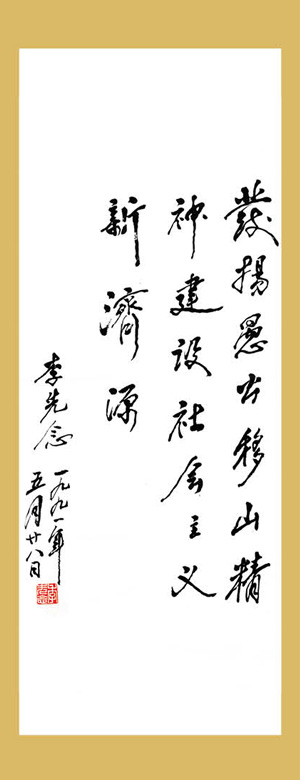 發揚愚公移山精
神建设社会主义
新濟源
李先念
一九九一年
五月廿八日